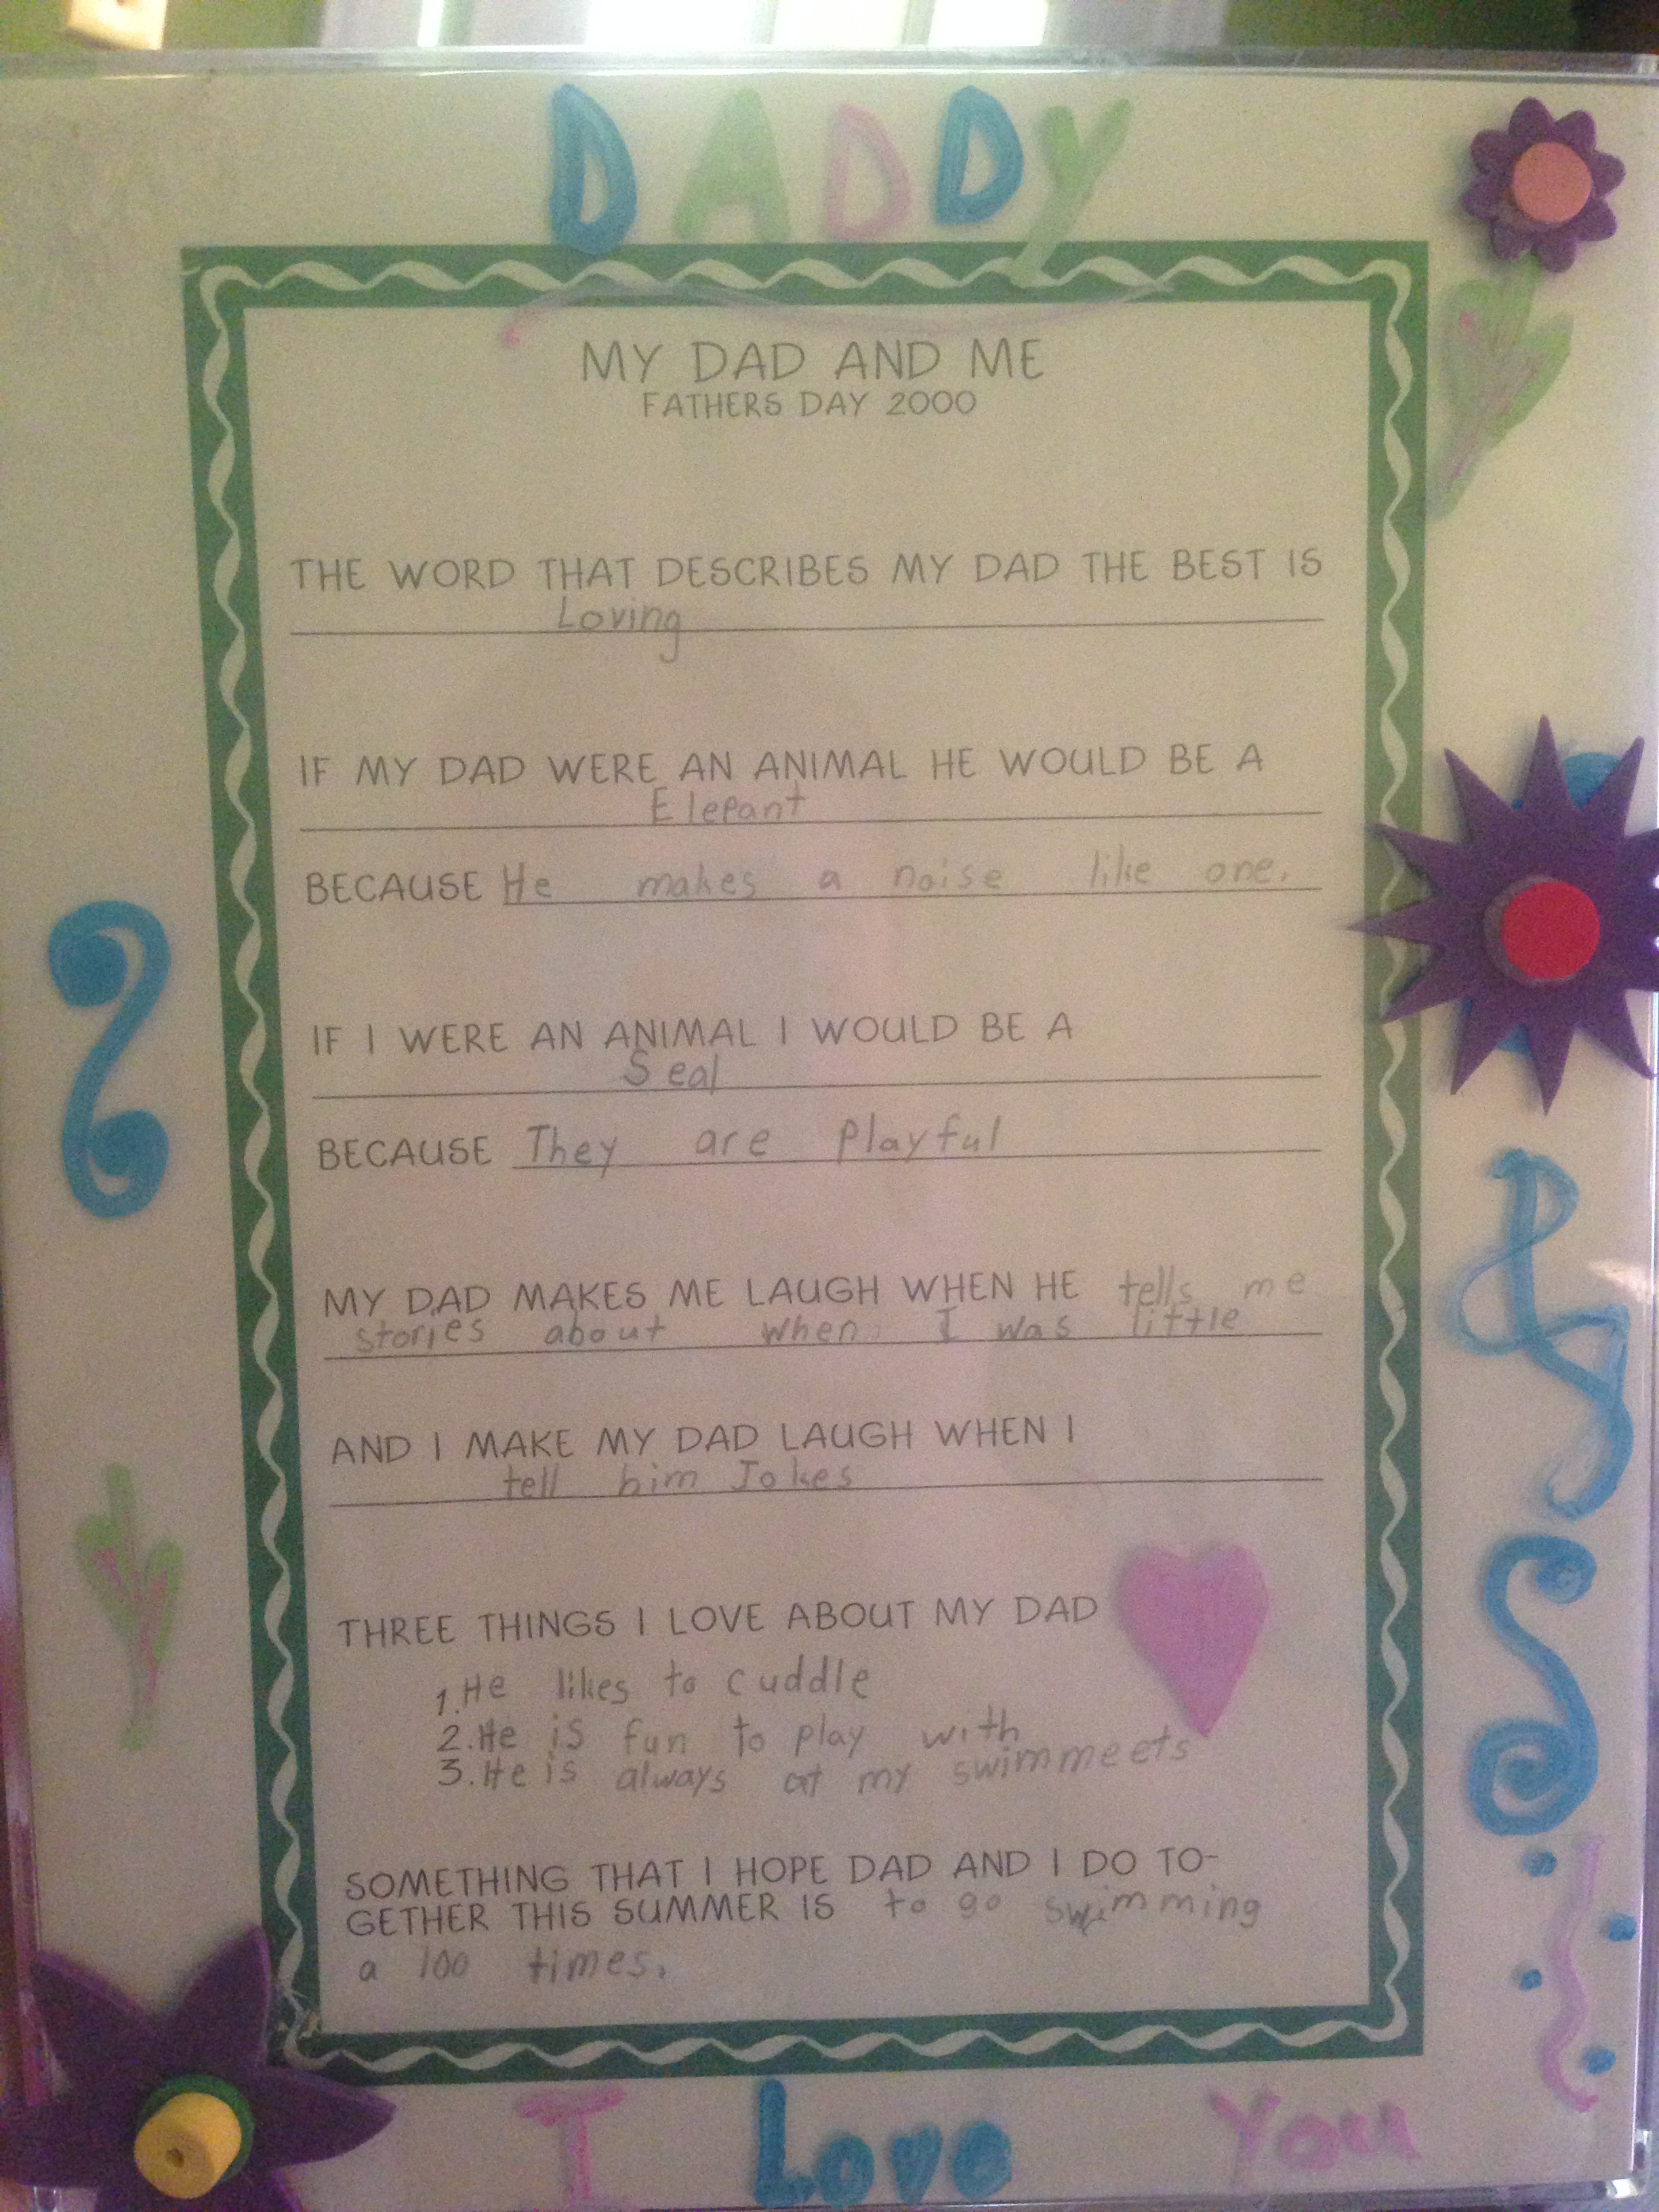 DADDY
MY DAD AND ME
FATHERS DAY 2000
THE WORD THAT DESCRIBES MY DAD THE BEST IS
Loving
IF MY DAD WERE AN ANIMAL HE WOULD BE A
Elepant
BECAUSE He makes a noise like one.
IF I WERE AN ANIMAL I WOULD BE A
Seal
BECAUSE They are playful
MY DAD MAKES ME LAUGH WHEN HE tells me
stories about when I was little
AND I MAKE MY DAD LAUGH WHEN I
tell him Jokes
THREE THINGS I LOVE ABOUT MY DAD
1. He likes to cuddle
2. He is fun to play with
3. He is always at my swimmeets
SOMETHING THAT I HOPE DAD AND I DO TO-
GETHER THIS SUMMER IS to go swimming
a 100 times.
I Love You